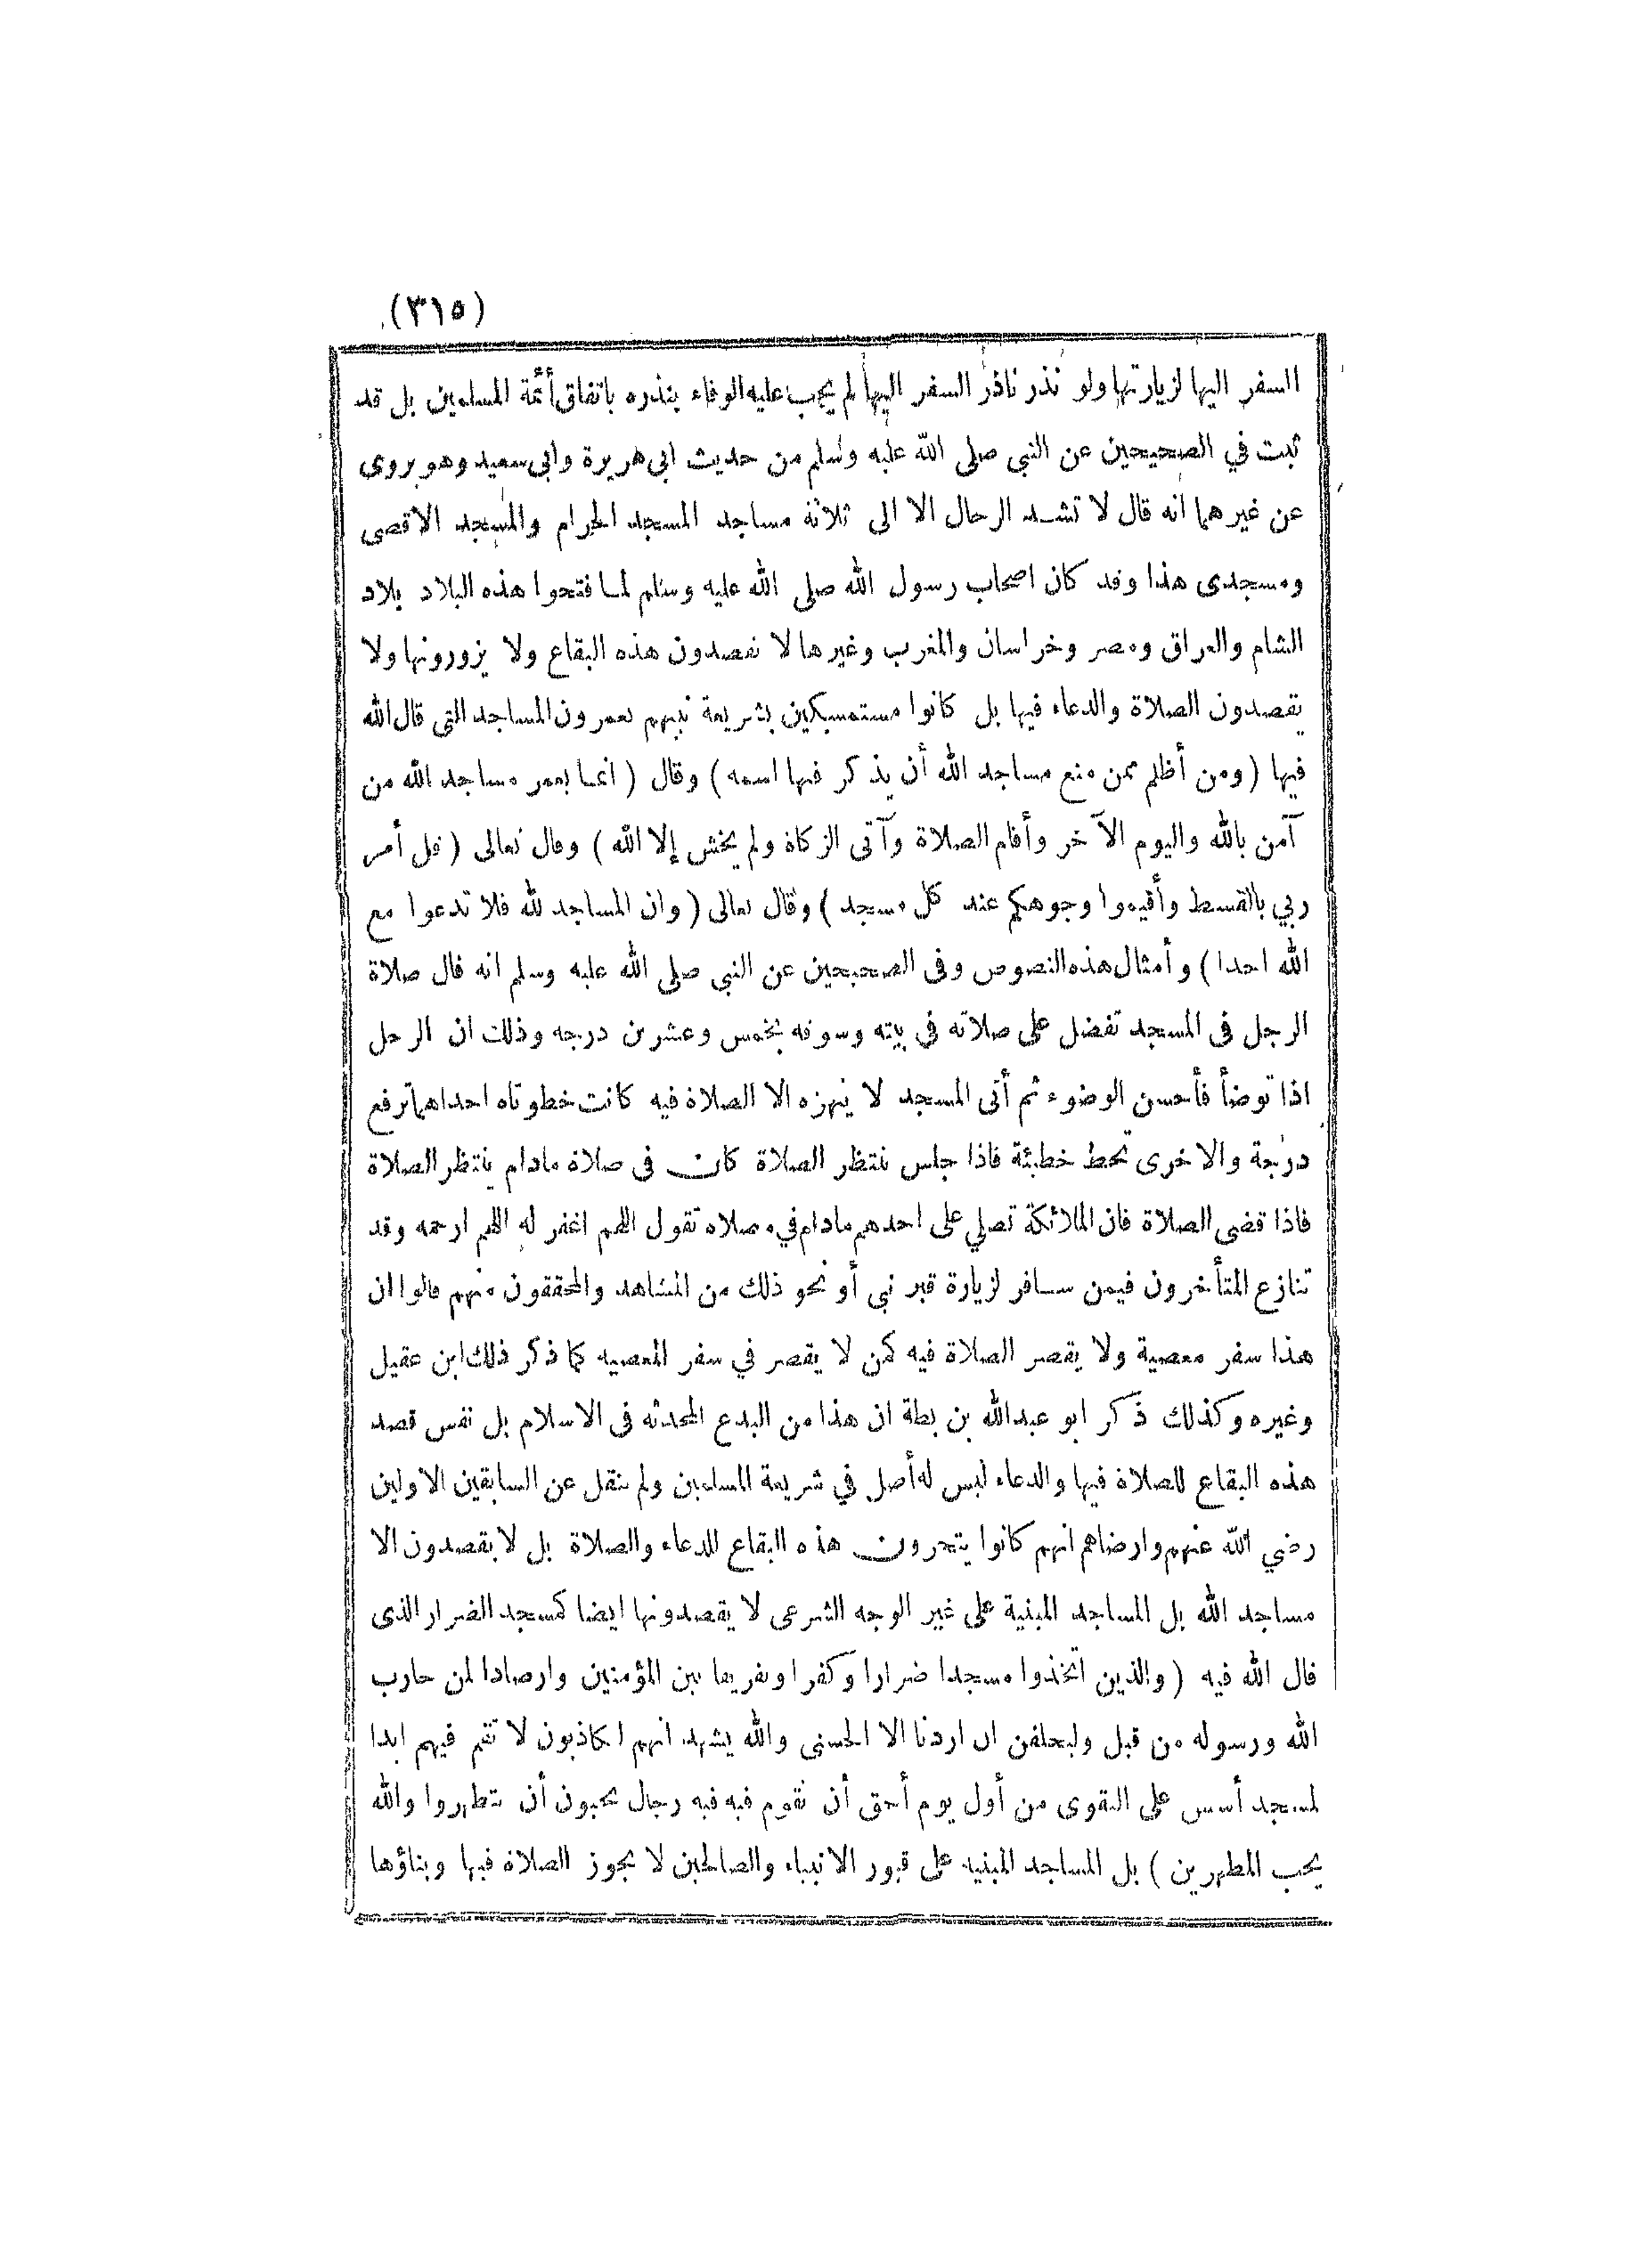 (٣١٥)
السفر اليها لزيارتها ولو نذر ناذر السفر اليها لم يجب عليه الوفاء بنذره باتفاق أئمة المسلمين بل قد
ثبت في الصحيحين عن النبي صلى الله عليه وسلم من حديث ابى هريرة وابى سعيد وهو يروى
عن غيرهما انه قال لا تشد الرحال الا الى ثلاثة مساجد المسجد الحرام والمسجد الاقصى
ومسجدى هذا وقد كان اصحاب رسول الله صلى الله عليه وسلم لما فتحوا هذه البلاد بلاد
الشام والعراق ومصر وخراسان والمغرب وغيرها لا يقصدون هذه البقاع ولا يزورونها ولا
يقصدون الصلاة والدعاء فيها بل كانوا مستمسكين بشريعة نبيهم يعمرون المساجد التى قال الله
فيها (ومن أظلم ممن منع مساجد الله أن يذكر فيها اسمه) وقال (انما يعمر مساجد الله من
آمن بالله واليوم الآخر وأقام الصلاة وآتى الزكاة ولم يخش إلا الله) وقال تعالى (قل أمر
ربي بالقسط وأقيموا وجوهكم عند كل مسجد) وقال تعالى (وان المساجد لله فلا تدعوا مع
الله احدا) وأمثال هذه النصوص وفى الصحيحين عن النبي صلى الله عليه وسلم انه قال صلاة
الرجل فى المسجد تفضل على صلاته في بيته وسوقه بخمس وعشرين درجه وذلك ان الرجل
اذا توضأ فأحسن الوضوء ثم أتى المسجد لا ينهزه الا الصلاة فيه كانت خطوتاه احداهما ترفع
درجة والاخرى تحط خطيئة فاذا جلس ينتظر الصلاة كان فى صلاة مادام ينتظر الصلاة
فاذا قضى الصلاة فان الملائكة تصلي على احدهم مادام في مصلاه تقول اللهم اغفر له اللهم ارحمه وقد
تنازع المتأخرون فيمن سافر لزيارة قبر نبي أو نحو ذلك من المشاهد والمحققون منهم قالوا ان
هذا سفر معصية ولا يقصر الصلاة فيه كمن لا يقصر في سفر المعصيه كما ذكر ذلك ابن عقيل
وغيره وكذلك ذكر ابو عبدالله بن بطة ان هذا من البدع المحدثه فى الاسلام بل نفس قصد
هذه البقاع للصلاة فيها والدعاء ليس له أصل في شريعة المسلمين ولم ينقل عن السابقين الاولين
رضي الله عنهم وارضاهم انهم كانوا يتحرون هذه البقاع للدعاء والصلاة بل لا يقصدون الا
مساجد الله بل المساجد المبنية على غير الوجه الشرعى لا يقصدونها ايضا كمسجد الضرار الذى
قال الله فيه (والذين اتخذوا مسجدا ضرارا وكفرا وتفريقا بين المؤمنين وارصادا لمن حارب
الله ورسوله من قبل وليحلفن ان اردنا الا الحسنى والله يشهد انهم لكاذبون لا تقم فيهم ابدا
لمسجد أسس على التقوى من أول يوم أحق أن تقوم فيه فيه رجال يحبون أن يتطهروا والله
يحب المطهرين) بل المساجد المبنيه على قبور الانبياء والصالحين لا يجوز الصلاة فيها وبناؤها